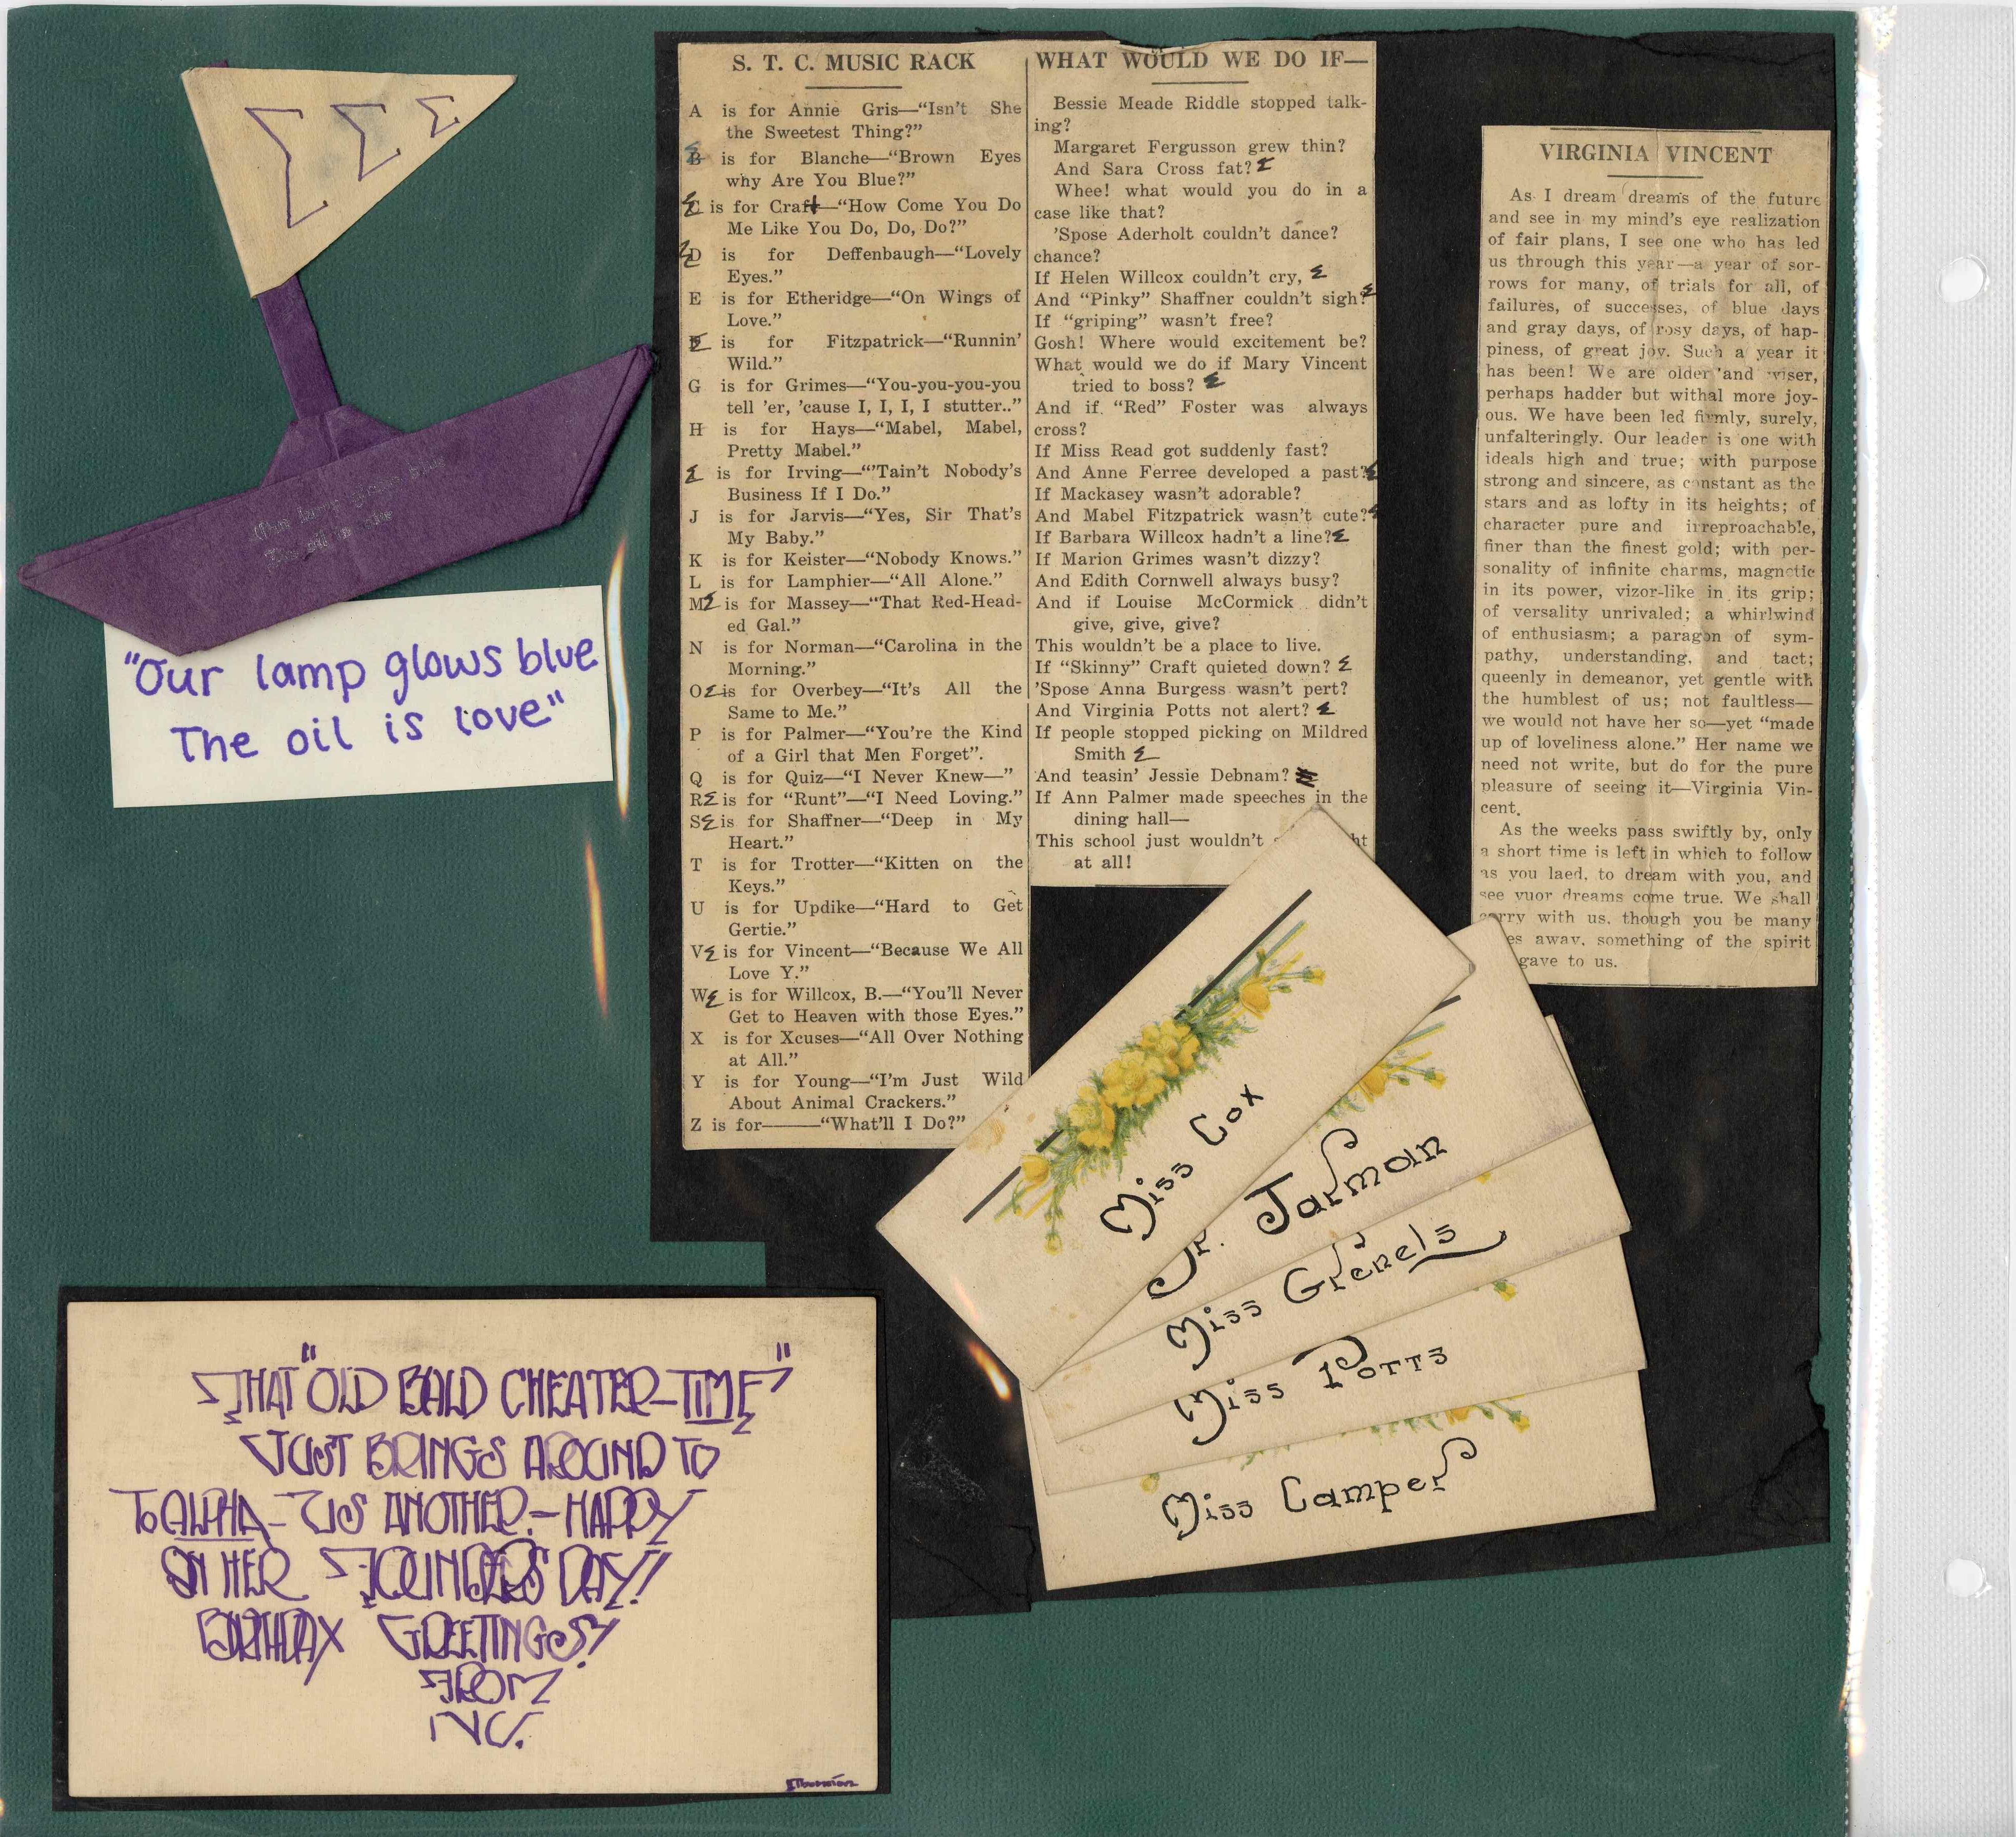 Σ Σ Σ
Our lamp glows blue
The oil is love
"Our lamp glows blue
The oil is love"
S. T. C. MUSIC RACK
A is for Annie Gris—"Isn't She
the Sweetest Thing?"
B is for Blanche—"Brown Eyes
why Are You Blue?"
C is for Craft—"How Come You Do
Me Like You Do, Do, Do?"
D is for Deffenbaugh—"Lovely
Eyes."
E is for Etheridge—"On Wings of
Love."
F is for Fitzpatrick—"Runnin'
Wild."
G is for Grimes—"You-you-you-you
tell 'er, 'cause I, I, I, I stutter.."
H is for Hays—"Mabel, Mabel,
Pretty Mabel."
Σ is for Irving—"'Tain't Nobody's
Business If I Do."
J is for Jarvis—"Yes, Sir That's
My Baby."
K is for Keister—"Nobody Knows."
L is for Lamphier—"All Alone."
M Σ is for Massey—"That Red-Head-
ed Gal."
N is for Norman—"Carolina in the
Morning."
O Σ is for Overbey—"It's All the
Same to Me."
P is for Palmer—"You're the Kind
of a Girl that Men Forget".
Q is for Quiz—"I Never Knew—"
R Σ is for "Runt"—"I Need Loving."
S Σ is for Shaffner—"Deep in My
Heart."
T is for Trotter—"Kitten on the
Keys."
U is for Updike—"Hard to Get
Gertie."
V Σ is for Vincent—"Because We All
Love Y."
W Σ is for Willcox, B.—"You'll Never
Get to Heaven with those Eyes."
X is for Xcuses—"All Over Nothing
at All."
Y is for Young—"I'm Just Wild
About Animal Crackers."
Z is for———"What'll I Do?"
WHAT WOULD WE DO IF—
Bessie Meade Riddle stopped talk-
ing?
Margaret Fergusson grew thin?
And Sara Cross fat? Σ
Whee! what would you do in a
case like that?
'Spose Aderholt couldn't dance?
chance?
If Helen Willcox couldn't cry, Σ
And "Pinky" Shaffner couldn't sigh? Σ
If "griping" wasn't free?
Gosh! Where would excitement be?
What would we do if Mary Vincent
tried to boss? Σ
And if "Red" Foster was always
cross?
If Miss Read got suddenly fast?
And Anne Ferree developed a past? Σ
If Mackasey wasn't adorable?
And Mabel Fitzpatrick wasn't cute? Σ
If Barbara Willcox hadn't a line? Σ
If Marion Grimes wasn't dizzy?
And Edith Cornwell always busy?
And if Louise McCormick didn't
give, give, give?
This wouldn't be a place to live.
If "Skinny" Craft quieted down? Σ
'Spose Anna Burgess wasn't pert?
And Virginia Potts not alert? Σ
If people stopped picking on Mildred
Smith Σ
And teasin' Jessie Debnam? Σ
If Ann Palmer made speeches in the
dining hall—
This school just wouldn't
at all!
VIRGINIA VINCENT
As I dream dreams of the future
and see in my mind's eye realization
of fair plans, I see one who has led
us through this year—a year of sor-
rows for many, of trials for all, of
failures, of successes, of blue days
and gray days, of rosy days, of hap-
piness, of great joy. Such a year it
has been! We are older and wiser,
perhaps hadder but withal more joy-
ous. We have been led firmly, surely,
unfalteringly. Our leader is one with
ideals high and true; with purpose
strong and sincere, as constant as the
stars and as lofty in its heights; of
character pure and irreproachable,
finer than the finest gold; with per-
sonality of infinite charms, magnetic
in its power, vizor-like in its grip;
of versality unrivaled; a whirlwind
of enthusiasm; a paragon of sym-
pathy, understanding, and tact;
queenly in demeanor, yet gentle with
the humblest of us; not faultless—
we would not have her so—yet "made
up of loveliness alone." Her name we
need not write, but do for the pure
pleasure of seeing it—Virginia Vin-
cent.
As the weeks pass swiftly by, only
a short time is left in which to follow
as you laed, to dream with you, and
see yuor dreams come true. We shall
carry with us, though you be many
away, something of the spirit
gave to us.
Miss Cox
Dr. Jarman
Miss Grenels
Miss Potts
Miss Camper
THAT "OLD BALD CHEATER—TIME"
JUST BRINGS AROUND TO
TO ALPHA—US ANOTHER—HAPPY
ON HER FOUNDERS DAY!!
BIRTHDAY GREETINGS!
FROM